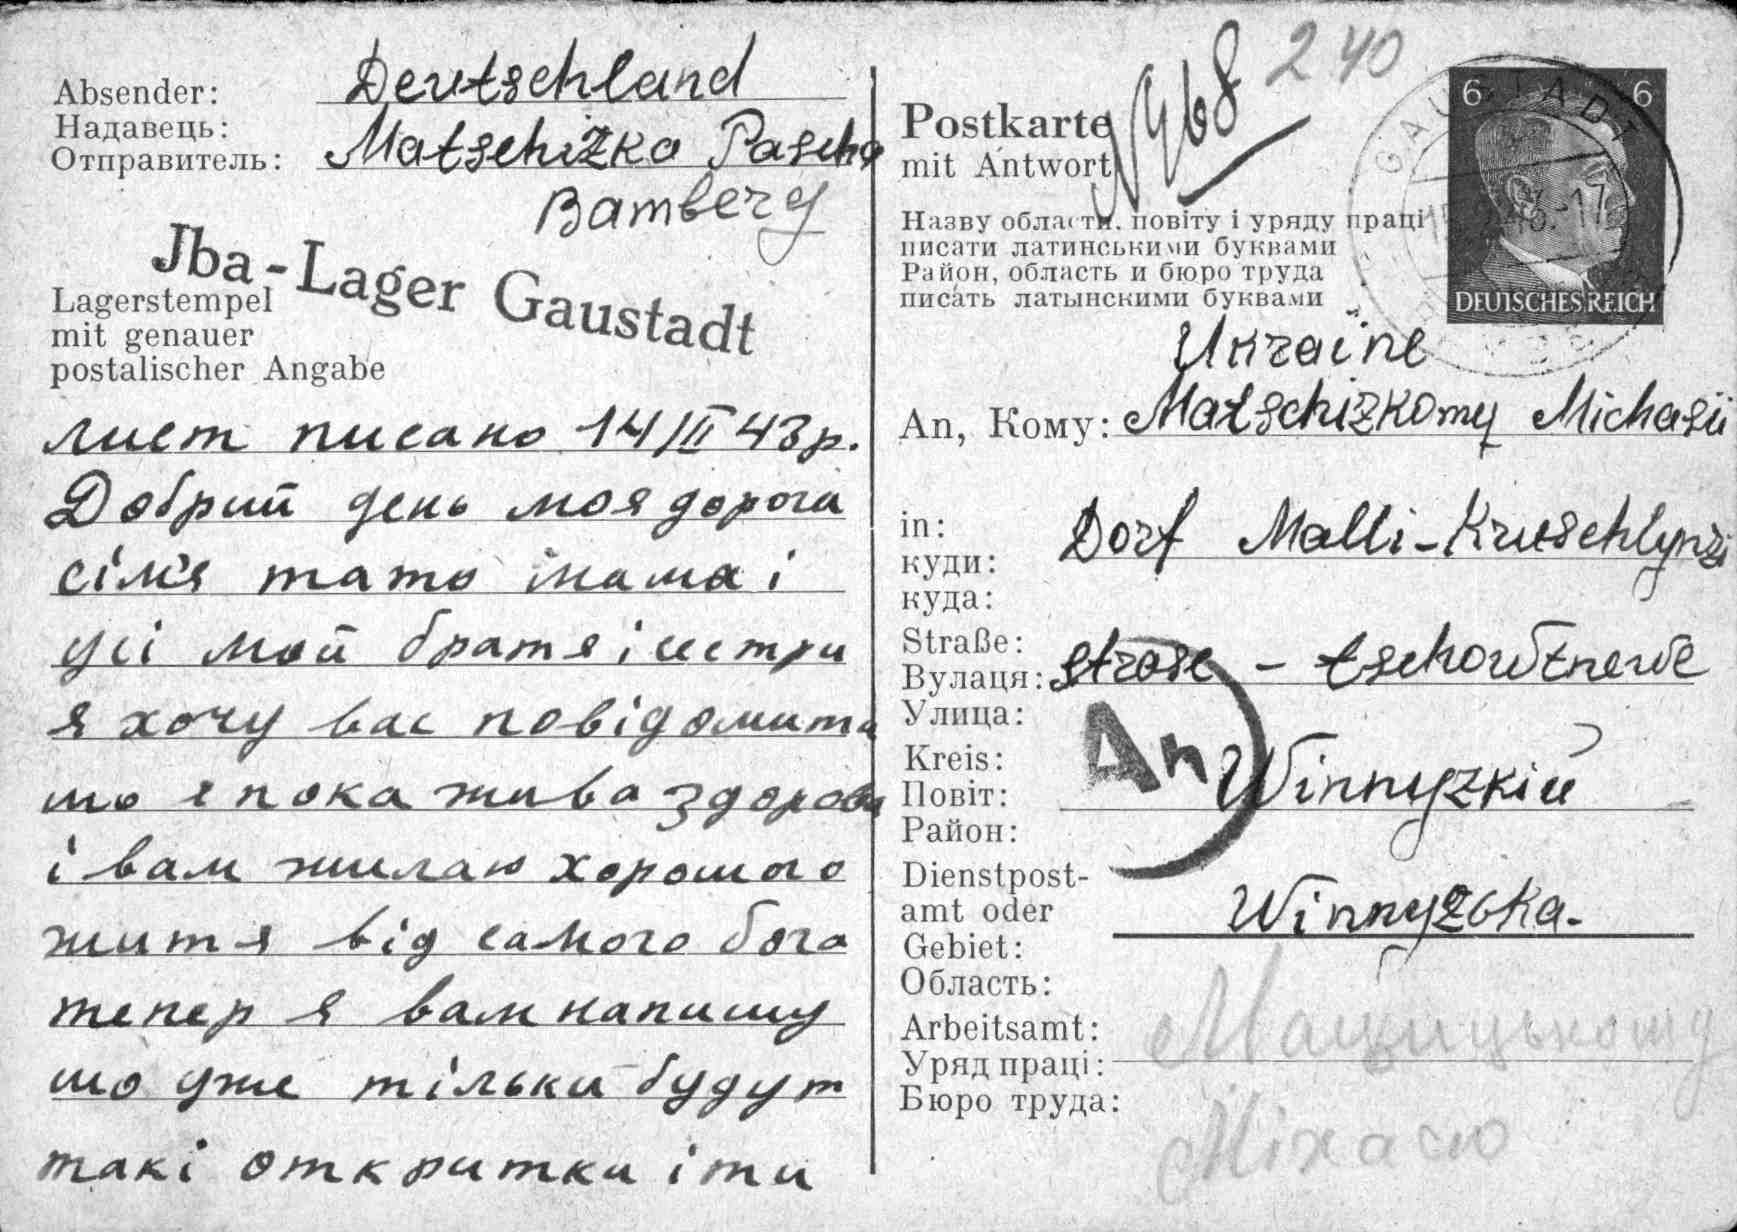 Absender:
Надавець:
Отправитель:
Deutschland
Matschizka Pascha
Bamberg
Jba-Lager Gaustadt
Lagerstempel
mit genauer
postalischer Angabe
лист писано 14/II 43 р.
Добрий день моя дорога
сімя тато імама і
усі мой братя і сестри
я хочу вас повідомити
шо я пока жива здорова
і вам жилаю хорошого
життя від самого бога
тепер я вам напишу
шо уже тільки будут
такі откритки іти
Postkarte
mit Antwort
240
Назву области, повіту і уряду праці
писати латинськими буквами
Район, область и бюро труда
писать латынскими буквами
6 6
GAUSTADT
DEUTSCHES REICH
Ukraїne
An, Кому: Matschizkomy Michasü
in:
куди:
куда:
Dorf Malli-Kruschlynzi
Straße:
Вулаця:
Улица:
strase -
An
Kreis:
Повіт:
Район:
Winnyzkiü
Dienstpost-
amt oder
Gebiet:
Область:
Winnyzka.
Arbeitsamt:
Уряд праці:
Бюро труда:
Мацицькому
Міхасю